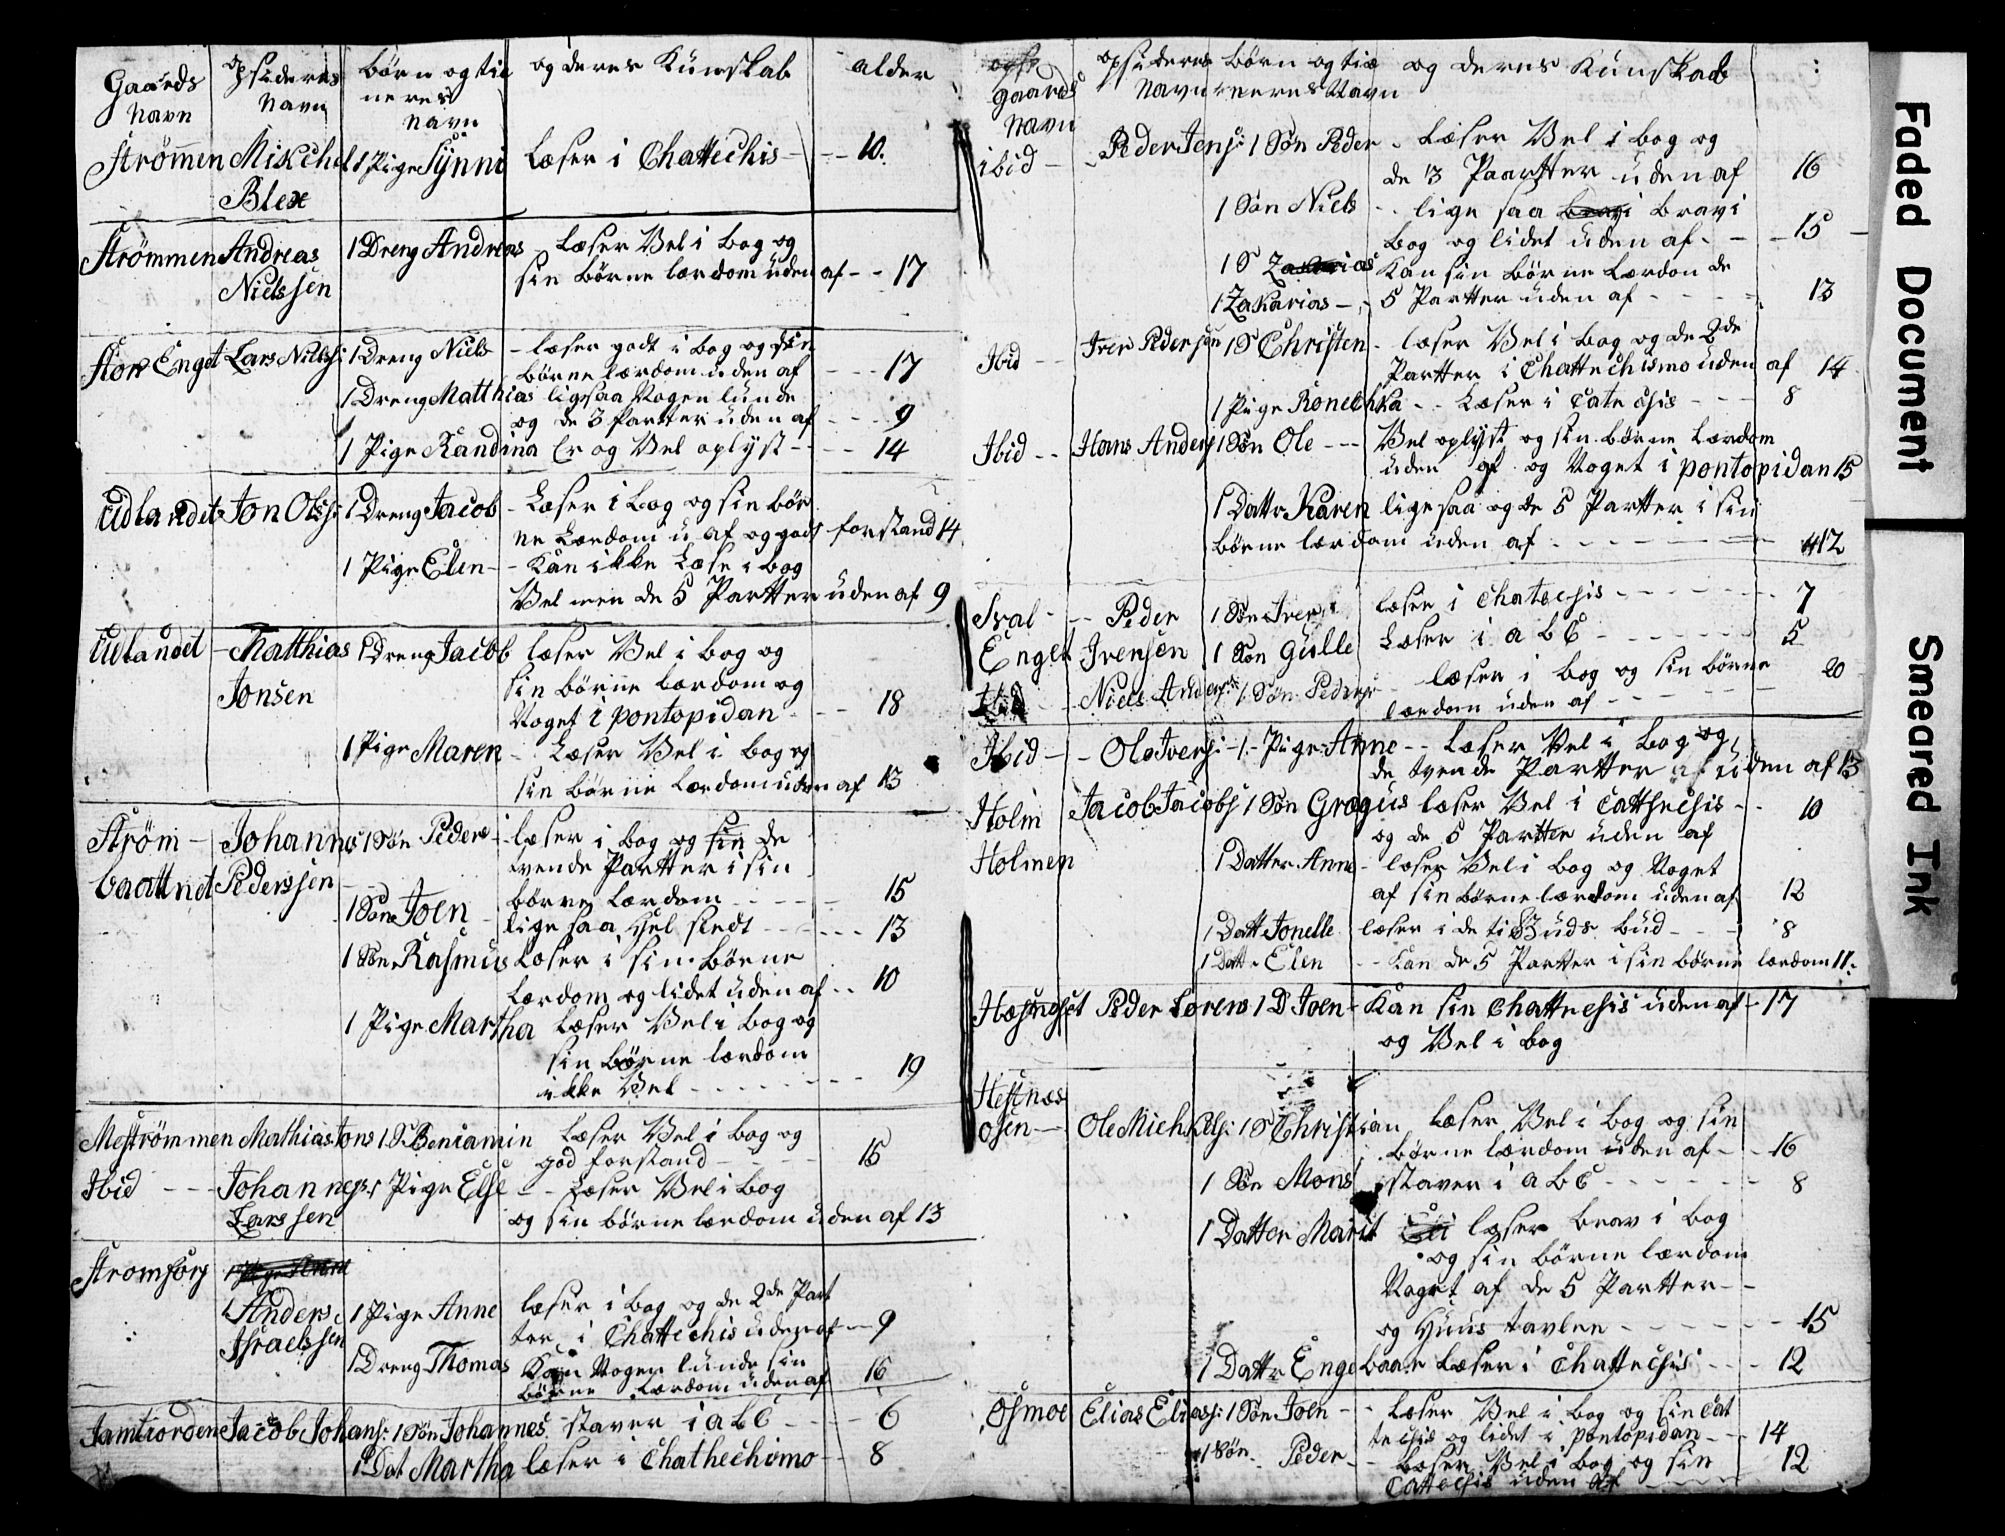 Gaards Navn | opsideres Navn | børn og tieneres Navn | og deres Kunskab | alder
Strømmen Mikchel 1 Pige Synni Læser i Chattechis - - 10.
Blex
Strömmen Andreas 1 Dreng Andreas Læser Vel i bog og
Nielssen sin børne lærdom uden af - - 17
Stor Enget Lars Nielss: 1 Dreng Niels - læser godt i bog og sin
børne lærdom uden af - - - 17
1 Dreng Matthias ligesaa Nogen lunde
og de 3 Partter uden af - - 9
1 Pige Randina Er og Vel oplyst - - - 14
Udlandet Jon Olss: 1 Dreng Jacob - Læser i bog og sin bør
ne Lærdom u af og god forstand 14
1 Pige Elen - - Kan ikke Læse i bog
Vel men de 5 Partter uden af 9
Udlandet - Matthias 1 Dreng Jacob læser Vel i bog og
Jonsen sin børne lærdom og
Noget i pontopidan - - - 18
1 Pige Maren - Læser Vel i bog og
sin børne Lærdom uden af 13
Strøm - Johannes 1 Søn Peder - læser i bog og sin de
baattnet Pederssen tvende Partter i sin
børne Lærdom - - - - 15
1 Søn Joen - lige saa Hel sledt - - - - 13
1 Søn Rasmus Læser i sin børne
Lærdom og lidet uden af - - 10
1 Pige Martha læser Vel i bog og
sin børne lærdom
ikke Vel - - - - - - - 19
Mestrømmen Mathias Jons 1 S Beniamin Læser Vel i bog og
god forstand - - - - - 15
Ibid - - - Johannes 1 Pige Else - - Læser Vel i bog
Larssen og sin børne lærdom uden af 13
Stromsørs
Anders 1 Pige Anne læser i bog og de 2de Part
Israelssen ter i Chattechis uden af - 9
1 Dreng Thomas Kan Nogen lunde sin
børne Lærdom uden af 16
Jamtiorden Jacob Johans: 1 Søn Johannes - staver i a b c - - - - 6
1 Dat Martha læser i Chathechismo - - 8
gaards Navn | opsideres Navn | børn og tieneres Navn | og deres Kunskab
ibid - - Peder Jens: 1 Søn Peder - Læser Vel i bog og
de 3 Paartter uden af 16
1 Søn Niels - - lige saa bravi bravi
bog og lidet uden af - - - 15 -
1 S Zakarias Kan sin børne Lærdom de
1 Zakarias - - 5 Partter uden af - - - - 13
Ibid - - Iver Pedersen 1 S Christen - læser Vel i bog og de 2de
Partter i Chattechismo uden af 14
1 Pige Ronechka - - Læser i Catechis - - - 8
Ibid - - Hans Anders 1 Søn Ole - - - Vel oplyst og sin børne Lærdom
uden af og Noget i pontopidan 15
1 Dattr Karen lige saa og de 5 Partter i sin
børne lærdom uden af - - - - - - - 12
Sval - - - Peder 1 Søn Iver læser i Chatechis - - - - - - - 7
Enget Ivensen 1 Søn Gulle Læser i a b c - - - - - - 5
Ibid - - Niels Anders: 1 Søn Peder - læser i bog og sin børne 20
lærdom uden af - -
Ibid - - Ole Ivers: - 1 - Pige Anne - - Læser Vel i bog og
de tvende Partter af uden af 13
Holm Jacob Jacobs 1 Søn Gragus læser Vel i Catthechis - - 10
og de 5 Partter uden af
Holmen 1 Datter Anne - læser Vel i bog og Noget
af sin børne lærdom uden af 12
1 Datt Jonelle læser i de ti Buds bud - - - 8
1 Datt - Elen - - Kan de 5 Partter i sin børne lærdom 11.
Hæsnset Peder Lorens 1 D Joen - Kan sin Chattechis uden af - 17
og Vel i bog
Hestnæs
osen - Ole Michkels: 1 S Christian Læser Vel i bog og sin
børne lærdom uden af - - 16
1 Søn Mons staver i a b c - - - - - - 8
1 Datter Marit læser brav i bog
og sin børne lærdom
Noget af de 5 Partter - -
og Huus tavlen - - - - - - 15
1 Dattr Engebaar Læser i Chattechis - - - 12
Osmoe Elias Eliass: 1 Søn Joen - - Læser Vel i bog og sin Cat
techis og lidet i pontopidan - - 14
1 Søn - Peder - - Læser Vel i bog og sin 12
Cattechis uden af - - - -
Faded Document
Smeared Ink